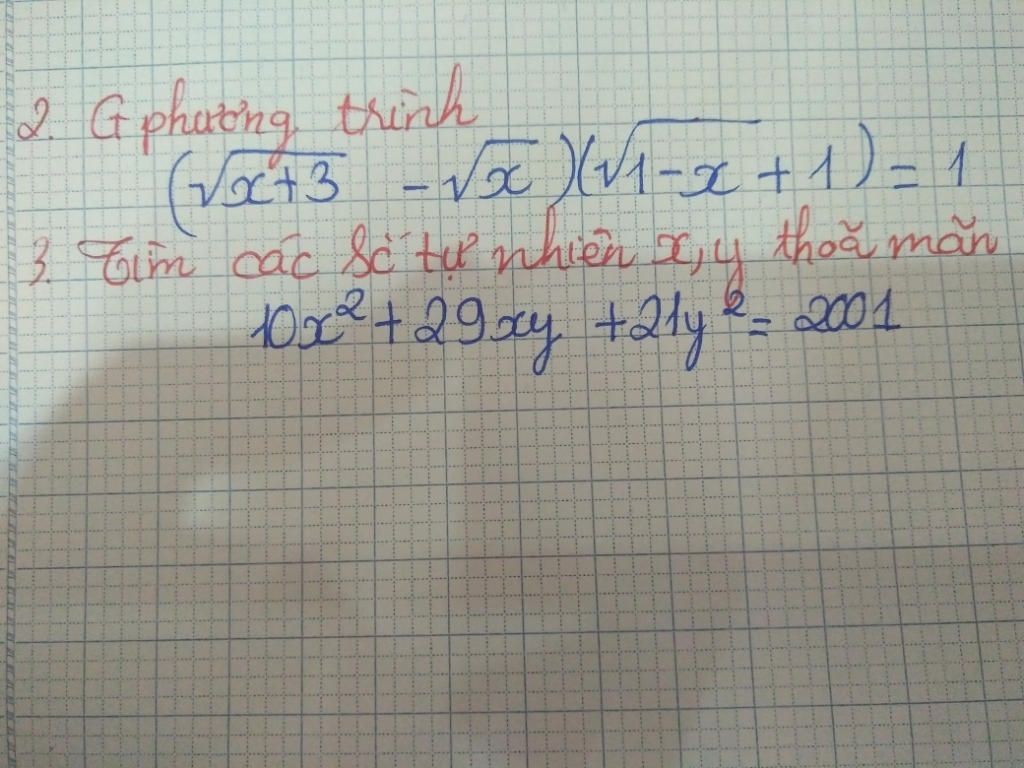 2. G phương trình
(√x+3 - √x)(√1-x + 1) = 1
3. Tìm các số tự nhiên x, y thoã mãn
10x² + 29xy + 21y² = 2001